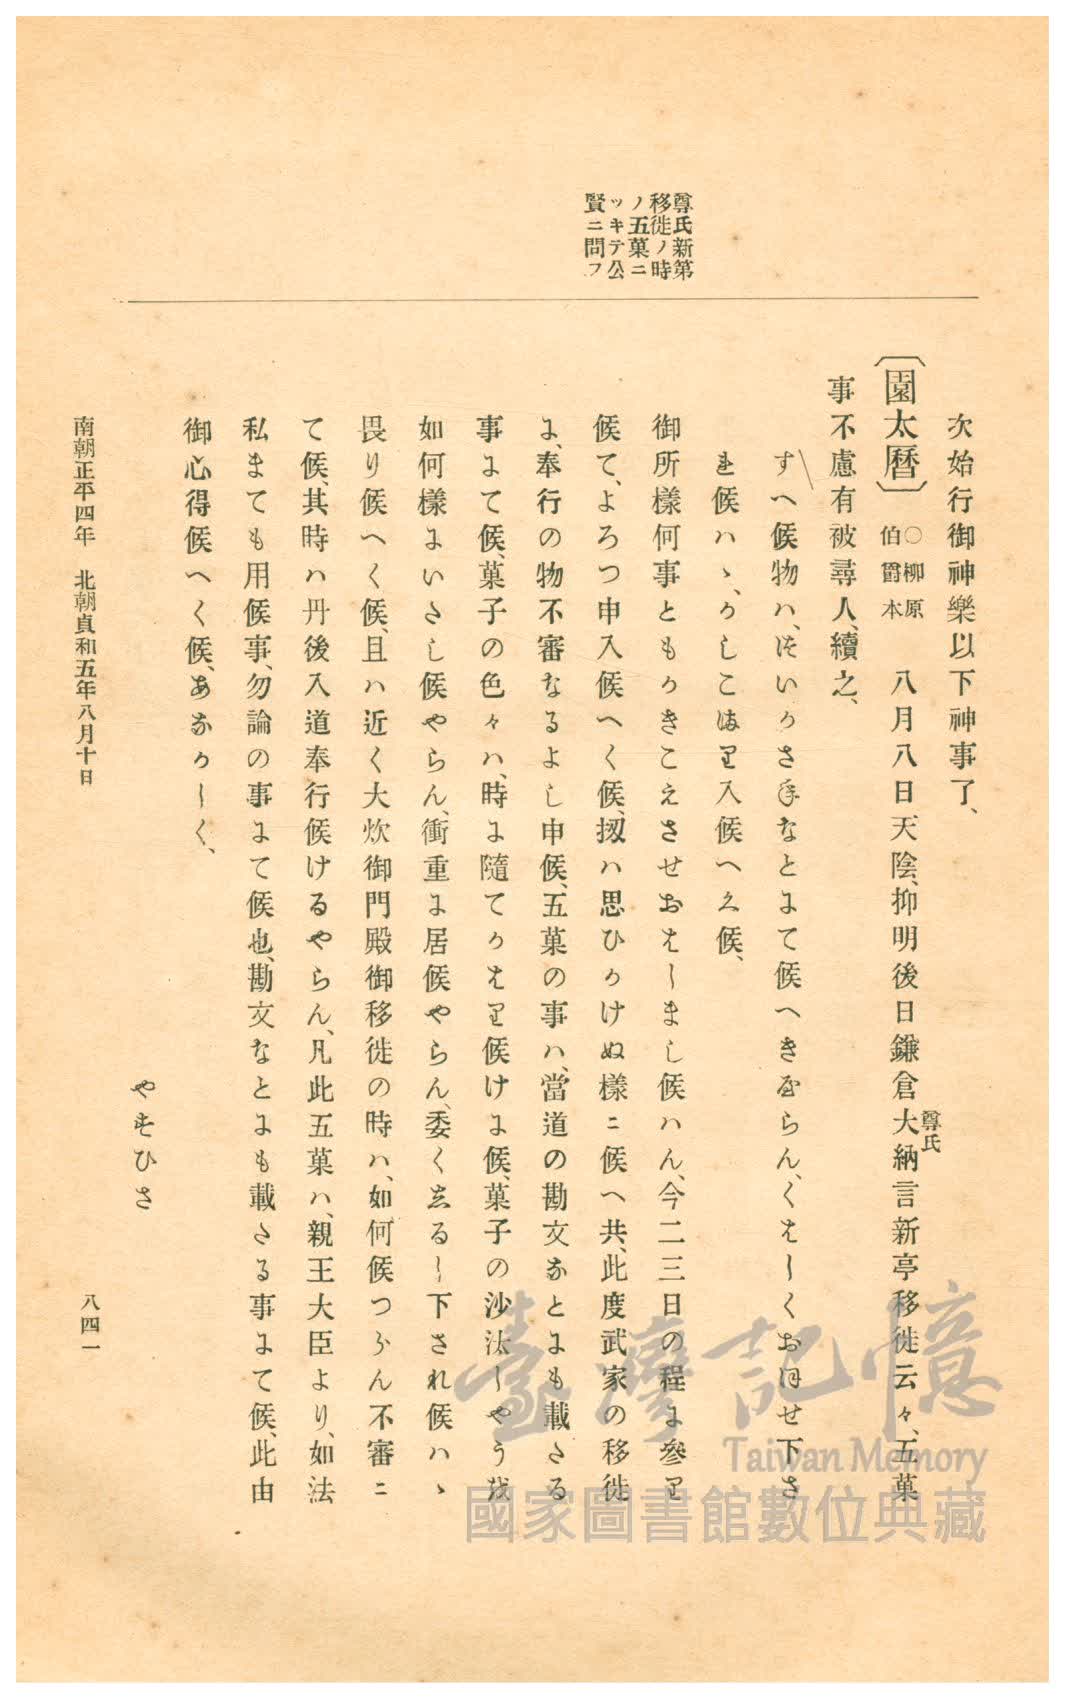 尊氏新第
移徙ノ時
ノ五菓ニ
ツキテ公
賢ニ問フ
次始行御神樂以下神事了、
〔園太曆〕○柳原伯爵本 八月八日、天陰、抑明後日鎌倉大納言新亭移徙云々、五菓
尊氏
事不慮有被尋人、續之、
すへ候物ハ、いつさなとにて候へきやらん、くはしくおほせ下さ
れ候ハヽ、かしこまり入候へく候、
御所樣何事ともかきこえさせおはしまし候ハん、今二三日の程に參り
候て、よろつ申入候へく候、扨ハ思ひかけぬ樣ニ候へ共、此度武家の移徙
に、奉行の物不審なるよし申候、五菓の事ハ、當道の勘文なとにも載さる
事にて候、菓子の色々ハ、時に隨てかはり候けに候、菓子の沙汰しやう
如何樣にいさし候やらん、衝重に居候やらん、委くしるし下され候ハヽ
畏り候へく候、且ハ近く大炊御門殿御移徙の時ハ、如何候つらん不審ニ
て候、其時ハ丹後入道奉行候けるやらん、凡此五菓ハ、親王大臣より、如法
私まても用候事、勿論の事にて候也、勘文なとにも載さる事にて候、此由
御心得候へく候、あなかしく、
やすひさ
南朝正平四年 北朝貞和五年八月十日
八四一
臺灣記憶
Taiwan Memory
國家圖書館數位典藏